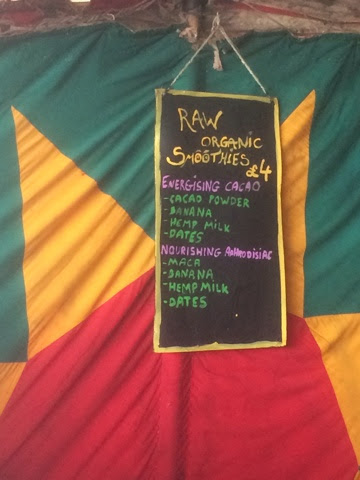 RAW
ORGANIC
SMOOTHIES £4
ENERGISING CACAO
- CACAO POWDER
- BANANA
- HEMP MILK
- DATES
NOURISHING APHRODISIAC
- MACA
- BANANA
- HEMP MILK
- DATES